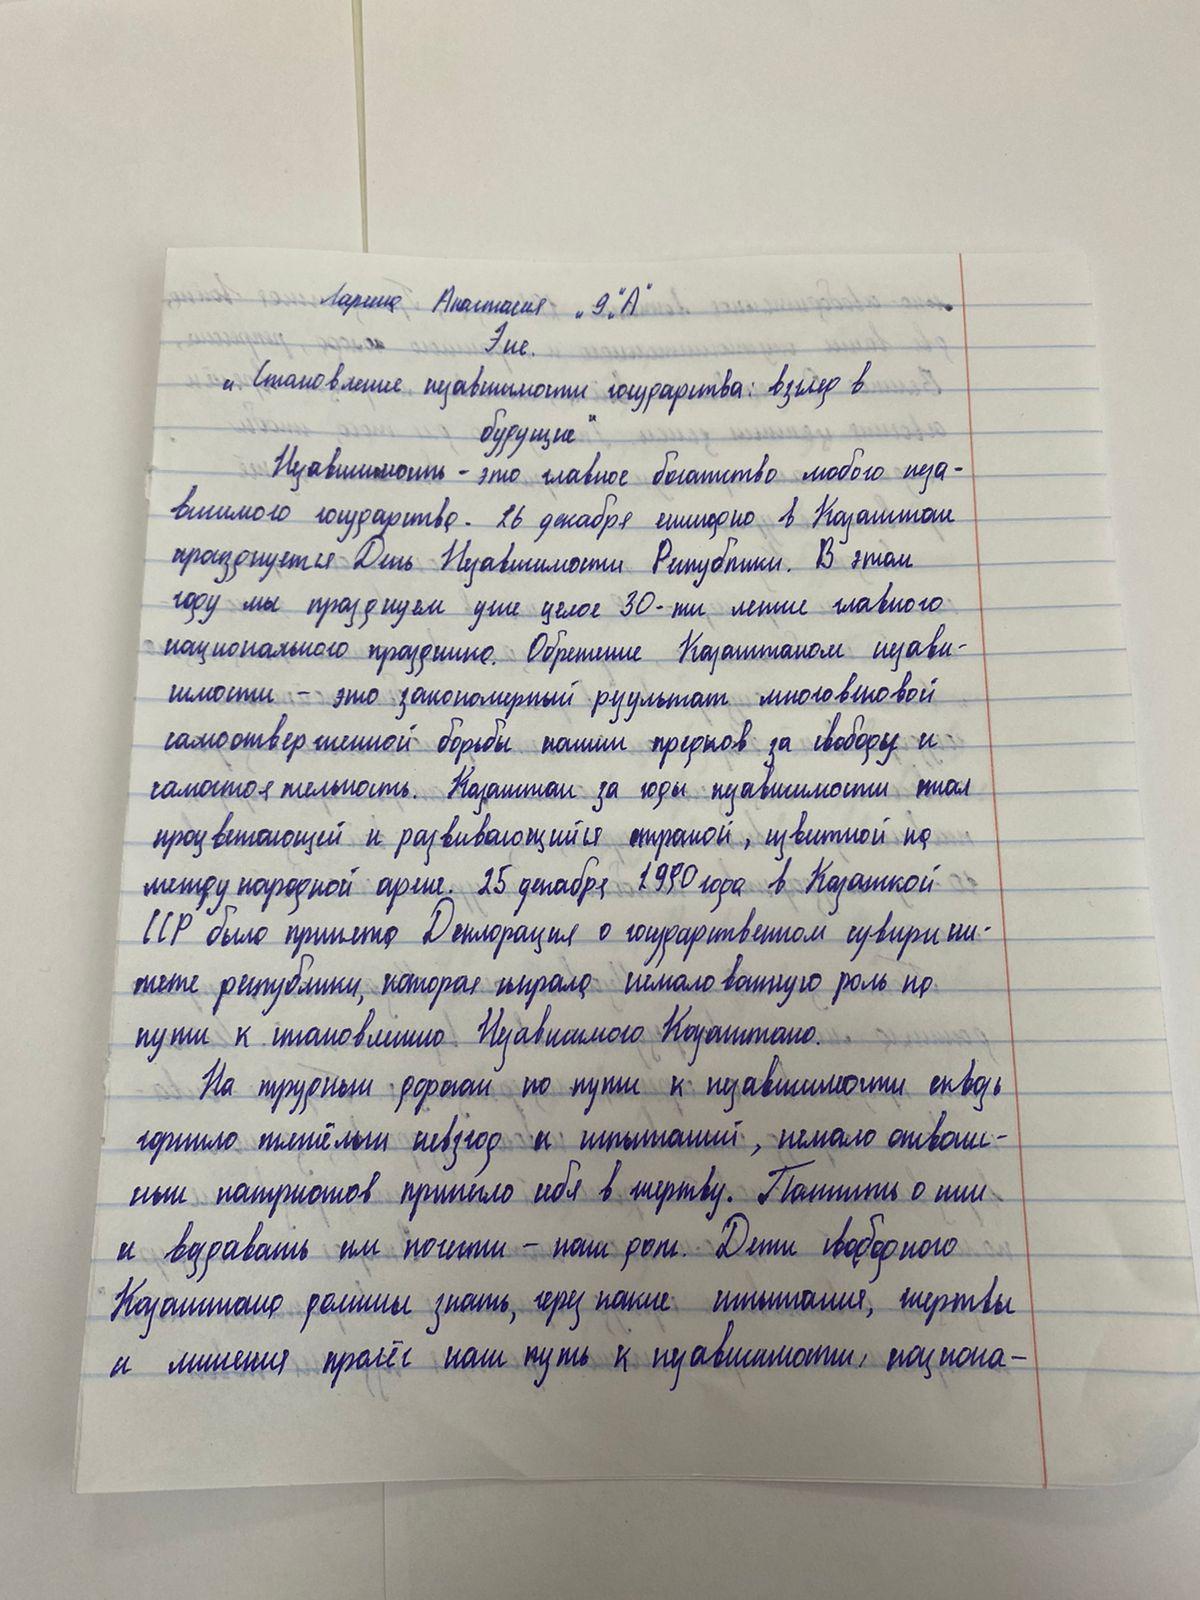 Ларина Анастасия „9 "А"
Эссе.
„Становление независимости государства: взгляд в
будущее"
Независимость - это главное богатство любого неза-
висимого государства. 16 декабря ежегодно в Казахстане
празднуется День Независимости Республики. В этом
году мы празднуем уже целое 30-ти летие главного
национального праздника. Обретение Казахстаном незави-
симости - это закономерный результат многовековой
самоотверженной борьбы наших предков за свободу и
самостоятельность. Казахстан за годы независимости стал
процветающей и развивающийся страной, известной на
международной арене. 25 декабря 1990 года в Казахской
ССР была принята Декларация о государственном суверени-
тете республики, которая сыграла немаловажную роль на
пути к становлению Независимого Казахстана.
На трудных дорогах по пути к независимости сквозь
горнило тяжёлых невзгод и испытаний, немало отваж-
ных патриотов принесло себя в жертву. Помнить о них
и воздавать им почести - наш долг. Дети свободного
Казахстана должны знать, через какие испытания, жертвы
и лишения пролёг наш путь к независимости, национа-